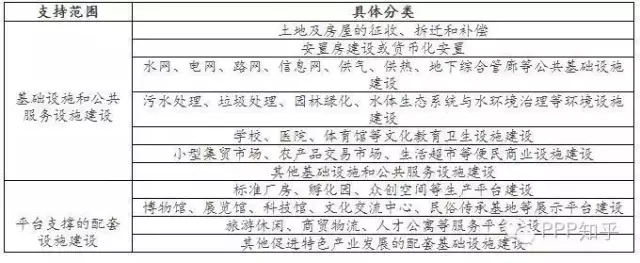 支持范围 具体分类
土地及房屋的征收、拆迁和补偿
安置房建设或货币化安置
水网、电网、路网、信息网、供气、供热、地下综合管廊等公共基础设施
建设
基础设施和公共
服务设施建设
污水处理、垃圾处理、园林绿化、水体生态系统与水环境治理等环境设施
建设
学校、医院、体育馆等文化教育卫生设施建设
小型集贸市场、农产品交易市场、生活超市等便民商业设施建设
其他基础设施和公共服务设施建设
平台支撑的配套
设施建设
标准厂房、孵化园、众创空间等生产平台建设
博物馆、展览馆、科技馆、文化交流中心、民俗传承基地等展示平台建设
旅游休闲、商贸物流、人才公寓等服务平台建设
其他促进特色产业发展的配套基础设施建设
PPP知乎